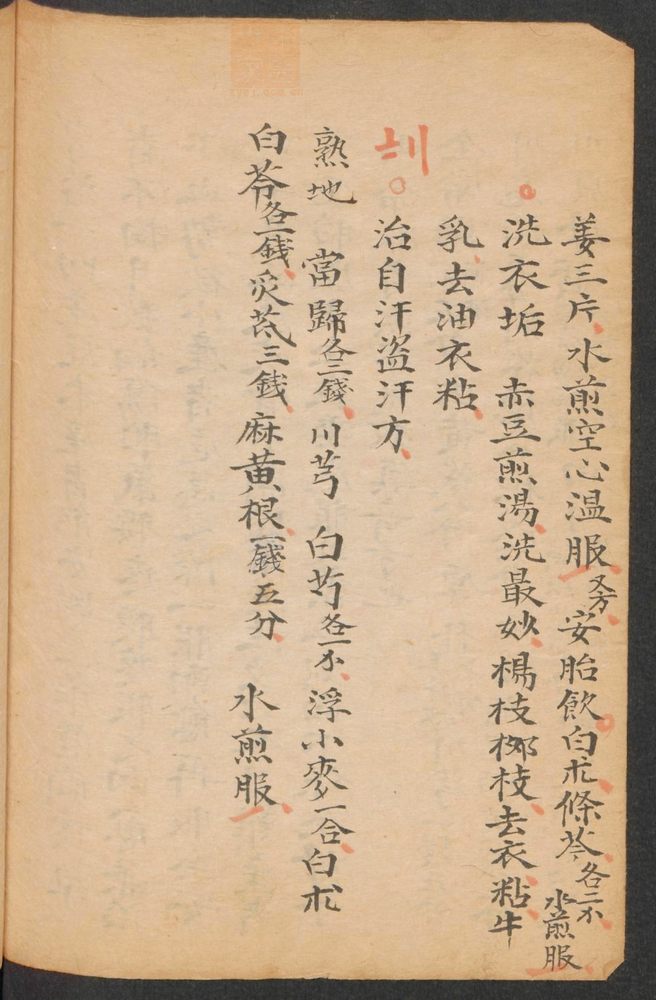 姜三片水煎空心温服又方安胎飲白朮條芩各二小水煎服
洗衣垢 赤豆煎湯洗最妙楊枝柳枝去衣粘牛
乳去油衣粘
治自汗盗汗方
熟地 當歸各三錢川芎 白芍各一小浮小麥一合白朮
白芩各一錢炙芪三錢麻黄根一錢五分 水煎服